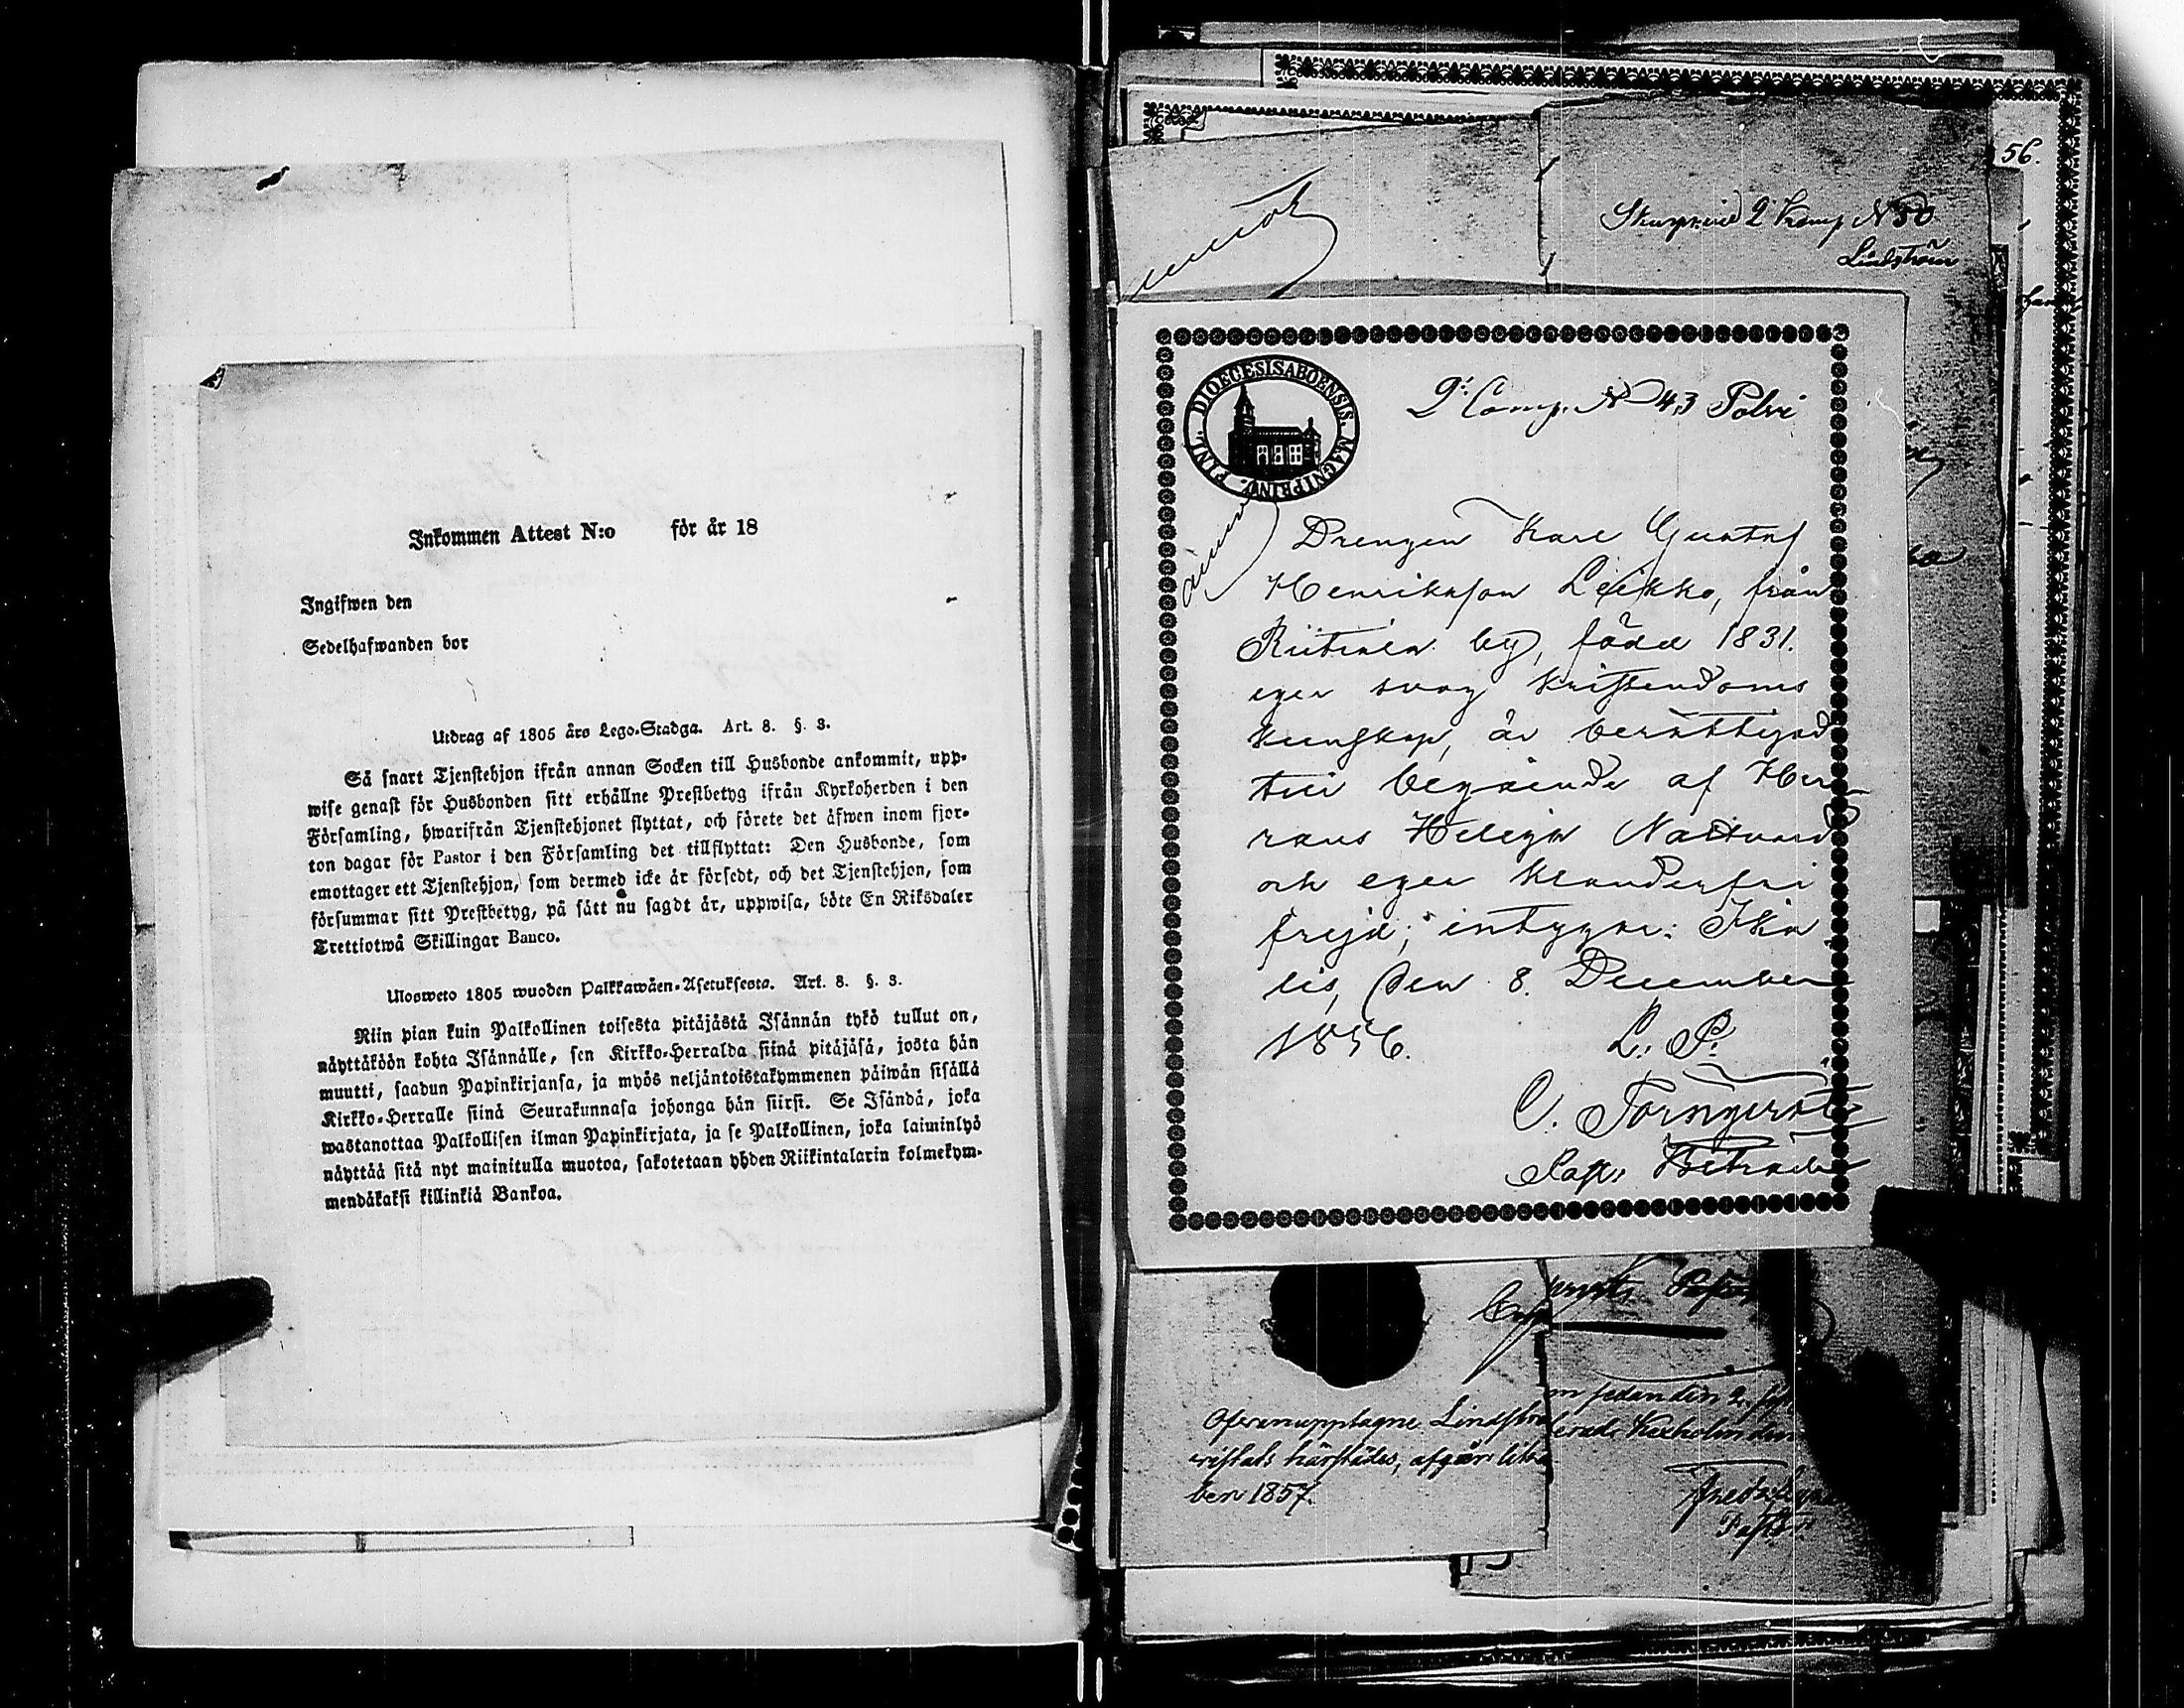 Inkommen Attest N:o för år 18
Ingifwen den
Sedelhafwanden bor
Utdrag af 1805 års Lego-Stadga. Art. 8. §. 3.
Så snart Tjenstehjon ifrån annan Socken till Husbonde ankommit, upp-
wise genast för Husbonden sitt erhållne Prestbetyg ifrån Kyrkoherden i den
Församling, hwarifrån Tjenstehjonet flyttat, och förete det äfwen inom fjor-
ton dagar för Pastor i den Församling det tillflyttat: Den Husbonde, som
emottager ett Tjenstehjon, som dermed icke är försedt, och det Tjenstehjon, som
försummar sitt Prestbetyg, på sätt nu sagdt är, uppwisa, böte En Riksdaler
Trettiotwå Skillingar Banco.
Ulosweto 1805 wuoden Palkkawäen-Asetuksesta. Art. 8. §. 3.
Niin pian kuin Palkollinen toisesta pitäjästä Isännän tykö tullut on,
näyttäköön kohta Isännälle, sen Kirkko-Herralda siinä pitäjäsä, josta hän
muutti, saadun Papinkirjansa, ja myös neljäntoistakymmenen päiwän sisällä
Kirkko-Herralle siinä Seurakunnasa johonga hän siirsi. Se Isändä, joka
wastanottaa Palkollisen ilman Papinkirjata, ja se Palkollinen, joka laiminlyö
näyttää sitä nyt mainitulla muotoa, sakotetaan yhden Riikintalarin kolmekym-
mendäkaksi killinkiä Bankoa.
56.
2 Komp N 50
Lindström
DIOECESIS ABOENSIS MAGNI PRINC. FINL.
2: Comp. N 43 Polvi
Drengen Karl Gustaf
Henriksson Leikko, från
by, född 1831.
eger svag kristendoms
kunskap, är berättigad
till begående af Her-
rans Heliga Nattvard
och eger klanderfri
frejd; intygar: Ika
lis, den 8. December
1856. L. S.
C. Törnqvist
Kap.
Ofvanupptagne Lindströ
härstädes, afgår
ber 1857.
m sedan den 2.
erade Kexholm den